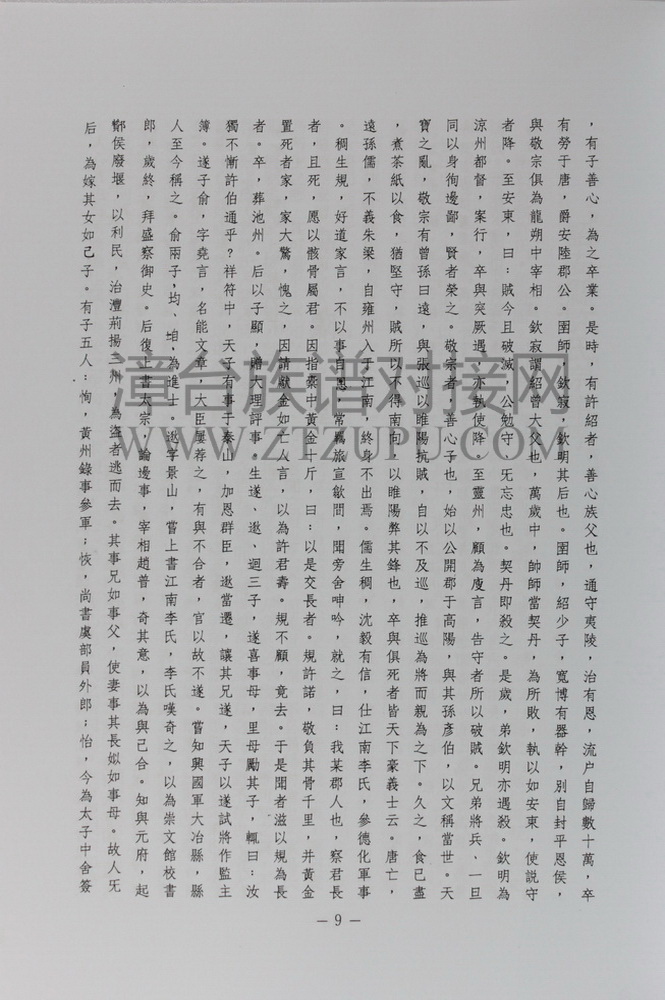 ，有子善心，為之卒業。是時，有許紹者，善心族父也，通守夷陵，治有恩，流户自歸數十萬，卒
有勞于唐，爵安陸郡公。圉師，欽寂，欽明其后也。圉師，紹少子，寬博有器幹，別自封平恩侯，
與敬宗俱為龍朔中宰相。欽寂謂紹曾大父也，萬歲中，帥師當契丹，為所敗，執以如安東，使説守
者降。至安東，曰：賊今且破滅，公勉守，旡忘忠也。契丹即殺之。是歲，弟欽明亦遇殺。欽明為
涼州都督，案行，卒與突厥遇，亦執使降。至靈州，顧為廋言，告守者所以破賊。兄弟將兵、一旦
同以身徇邊鄙，賢者荣之。敬宗者，善心子也，始以公開郡于高陽，與其孫彥伯，以文稱當世。天
寶之亂，敬宗有曾孫曰遠，與張巡以睢陽抗賊，自以不及巡，推巡為將而親為之下。久之，食已盡
，煮茶紙以食，猶堅守，賊所以不得南向，以睢陽弊其鋒也，卒與俱死者皆天下豪義士云。唐亡，
遠孫儒，不義朱梁，自雍州入于江南，終身不出焉。儒生稠，沈毅有信，仕江南李氏，參德化軍事
。稠生規，好道家言，不以事自恩，常羈旅宣歙間，聞旁舍呻吟，就之，曰：我某郡人也，察君長
者，且死，愿以骸骨屬君。因指橐中黄金十斤，曰：以是交長者。規許諾，敬負其骨千里，并黄金
置死者家，家大驚，愧之，因請献金如亡人言，以為許君壽。規不顧，竟去。于是聞者滋以規為長
者。卒，葬池州。后以子顯，贈大理評事。生遂、逖、迥三子，遂喜事母，里母勵其子，輒曰：汝
獨不慚許伯通乎？祥符中，天子有事于泰山，加恩群臣，逖當遷，讓其兄遂，天子以遂試將作監主
簿。遂子俞，字堯言，名能文章，大臣屢荐之，有與不合者，官以故不遂。嘗知興國軍大冶縣，縣
人至今稱之。俞兩子，均、垍，為進士。逖字景山，嘗上書江南李氏，李氏嘆奇之，以為崇文館校書
郎，歲終，拜盛察御史。后復上書太宗，論邊事，宰相趙普，奇其意，以為與己合。知與元府，起
酇侯廢堰，以利民，治澧荊揚三州，為盜者逃而去。其事兄如事父，使妻事其長姒如事母。故人旡
后，為嫁其女如己子。有子五人：恂，黃州錄事參軍；恢，尚書虞部員外郎；怡，今為太子中舍簽
－9－
漳台族谱对接网
WWW.ZTZUPU.COM